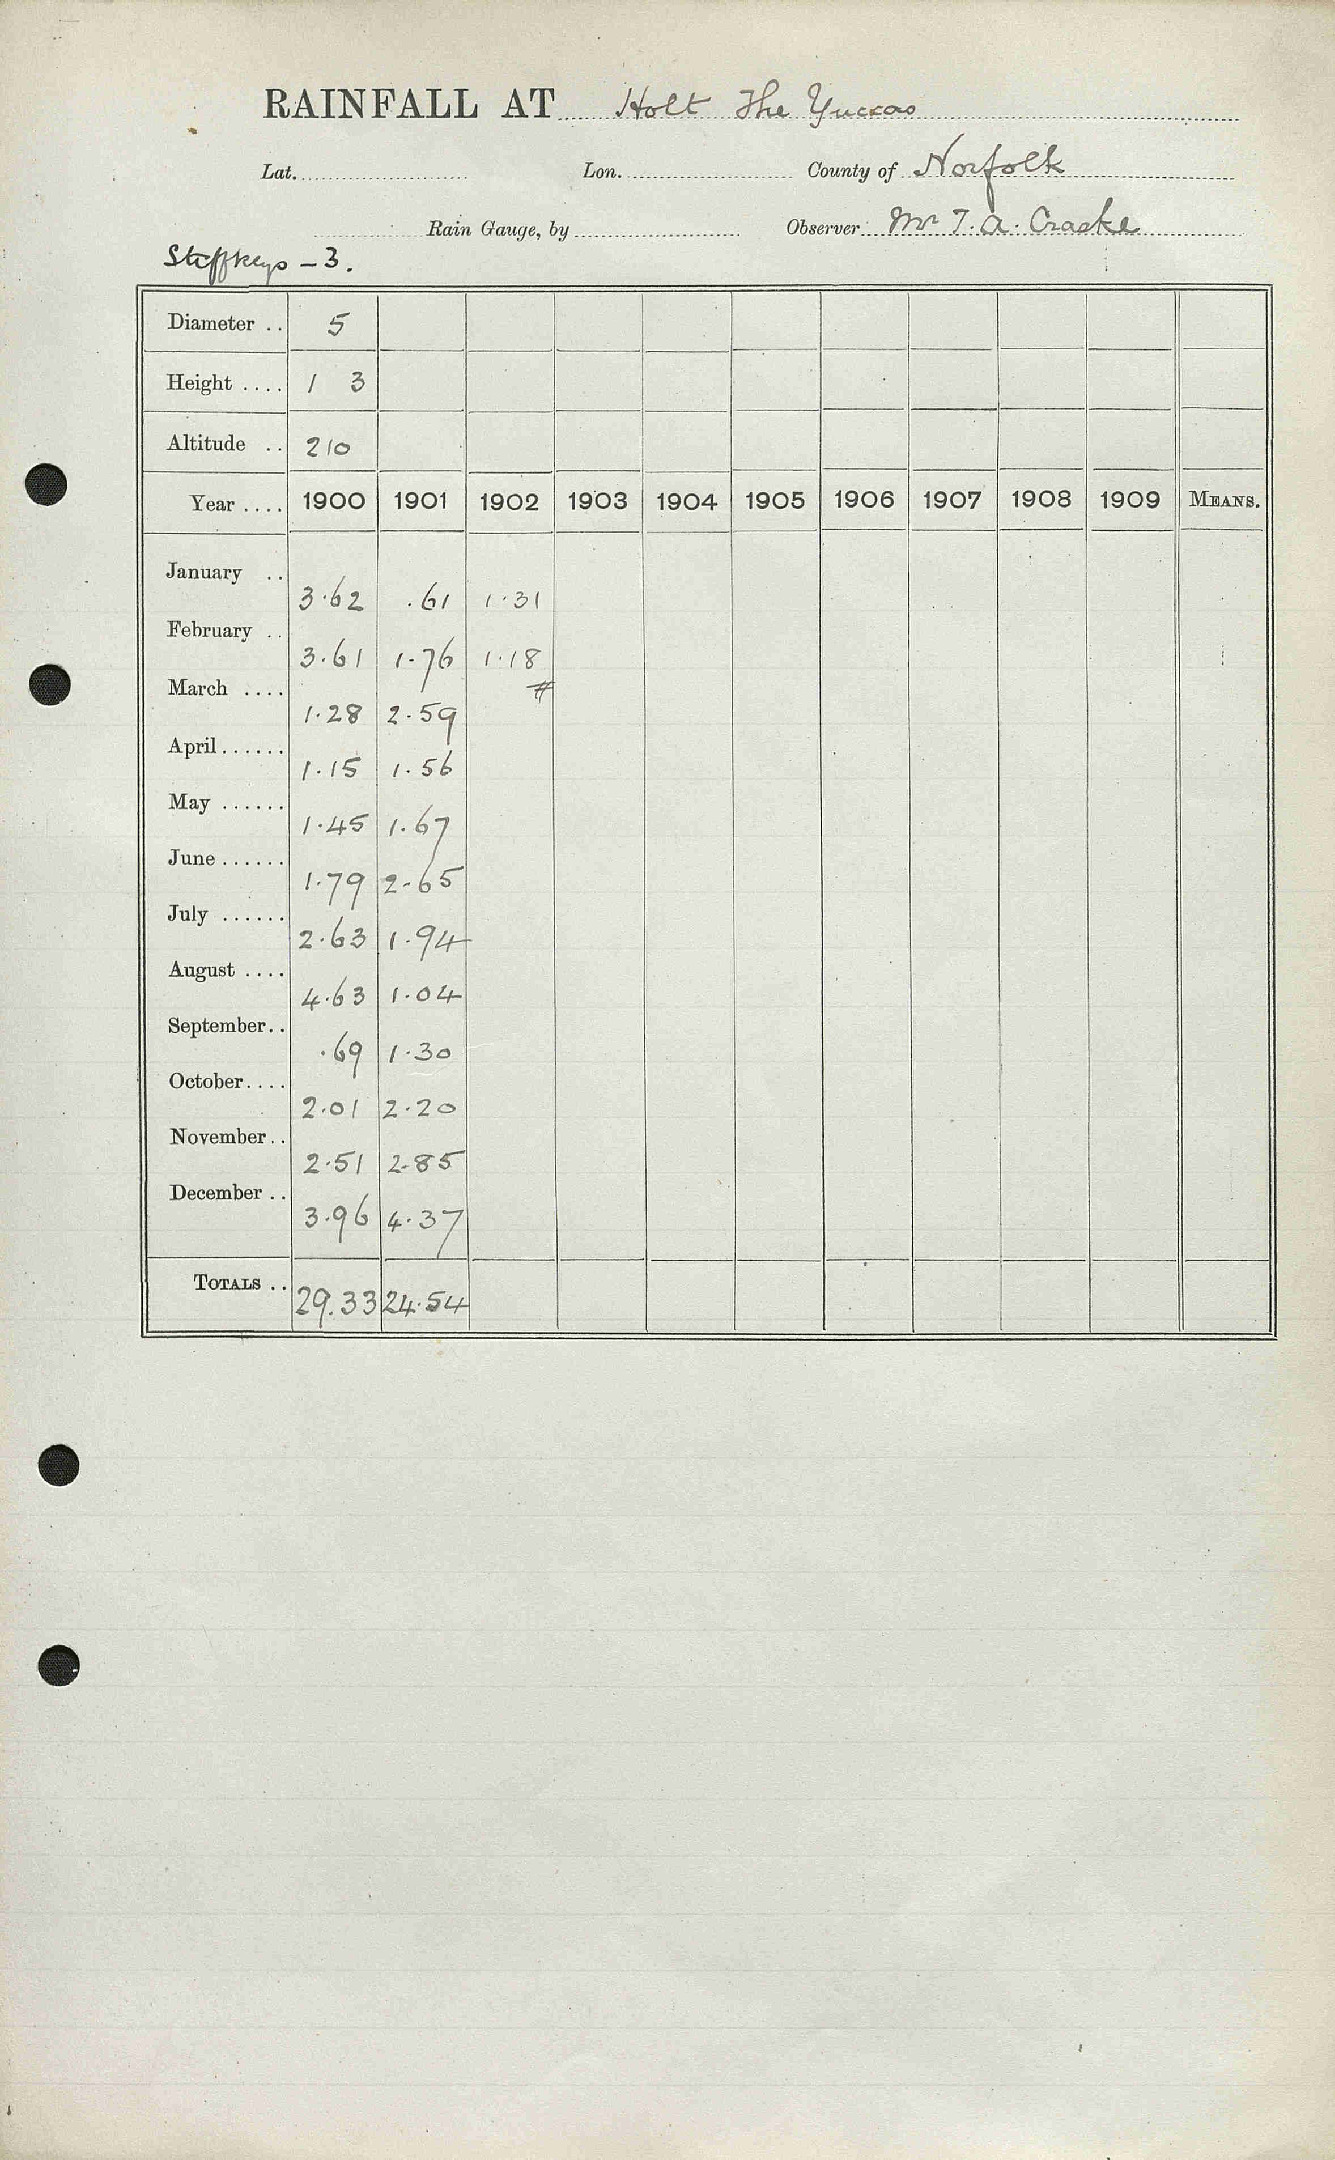 RAINFALL AT Holt The Yuccas
Lat. Lon. County of Norfolk
Rain Gauge, by Observer Mr T. A. Craske
Stiffkeys - 3.
Diameter .. 5
Height .... 1 3
Altitude .. 210
Year .... 1900 1901 1902 1903 1904 1905 1906 1907 1908 1909 MEANS.
January .. 3.62 .61 1.31
February .. 3.61 1.76 1.18
March .... 1.28 2.59 #
April ...... 1.15 1.56
May ...... 1.45 1.67
June ...... 1.79 2.65
July ...... 2.63 1.94
August .... 4.63 1.04
September .. .69 1.30
October .... 2.01 2.20
November .. 2.51 2.85
December .. 3.96 4.37
TOTALS .. 29.33 24.54